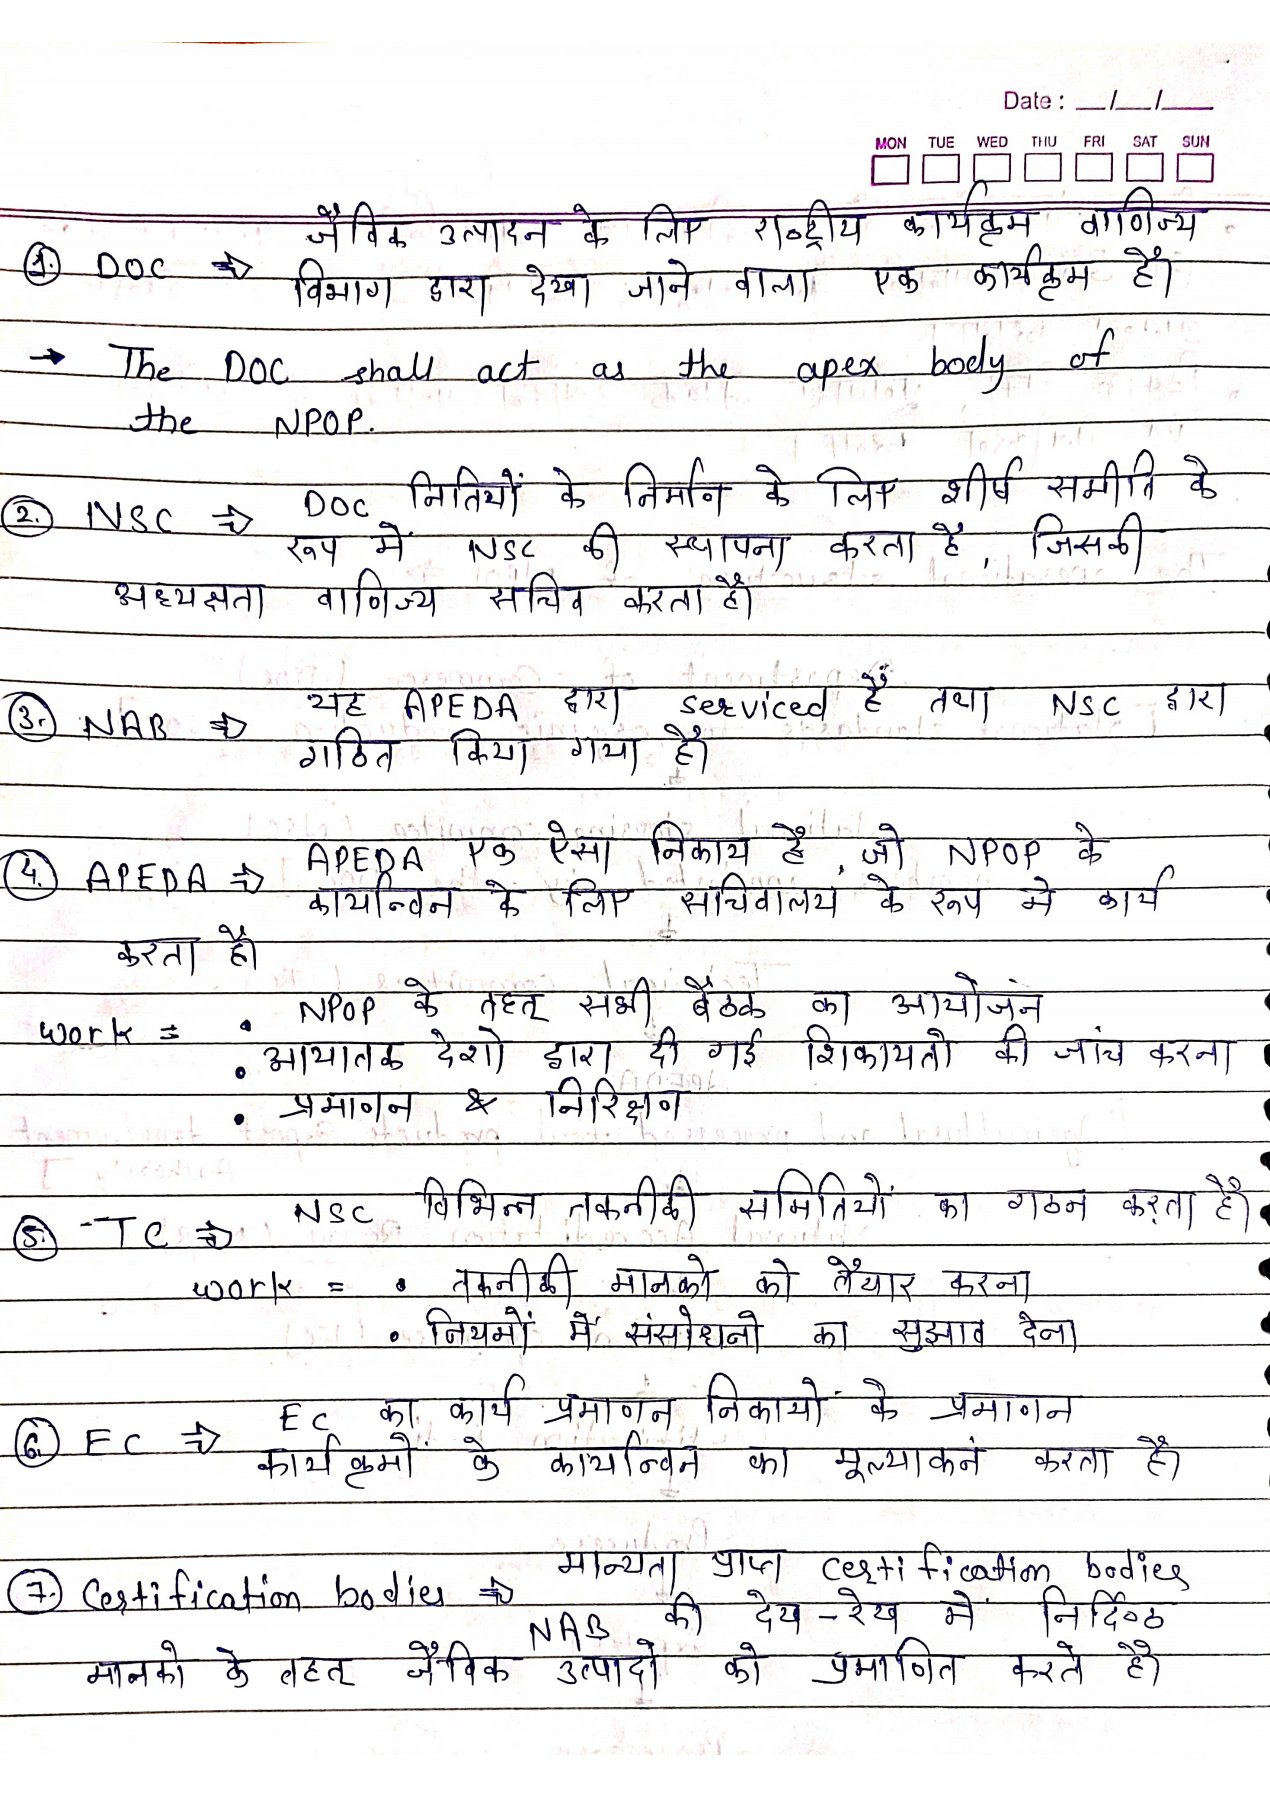 Date : __/__/___
MON TUE WED THU FRI SAT SUN
जैविक उत्पादन के लिए राष्ट्रीय कार्यक्रम वाणिज्य
1. DOC ⇒ विभाग द्वारा देखा जाने वाला एक कार्यक्रम है।
→ The DOC shall act as the apex body of
the NPOP.
DOC नितियों के निर्माण के लिए शीर्ष समीति के
2. NSC ⇒ रूप में NSC की स्थापना करता है, जिसकी
अध्यक्षता वाणिज्य सचिव करता है।
यह APEDA द्वारा serviced है तथा NSC द्वारा
3. NAB ⇒ गठित किया गया है।
APEDA एक ऐसा निकाय है, जो NPOP के
4. APEDA ⇒ कार्यान्विन के लिए सचिवालय के रूप मे कार्य
करता है।
work = • NPOP के तहत् सभी बैठक का आयोजन
• आयातक देशो द्वारा दी गई शिकायतो की जांच करना
• प्रमाणन & निरिक्षण
NSC विभिन्न तकनीकी समितियों का गठन करता है
5. TC ⇒
work = • तकनीकी मानको को तैयार करना
• नियमों में संसोधनो का सुझाव देना
EC का कार्य प्रमाणन निकायों के प्रमाणन
6. EC ⇒ कार्यक्रमों के कार्यान्विन का मूल्याकन करता है।
मान्यता प्राप्त certification bodies
7. Certification bodies ⇒ NAB की देख-रेख में निर्दिष्ठ
मानको के तहत् जैविक उत्पादो को प्रमाणित करते है।